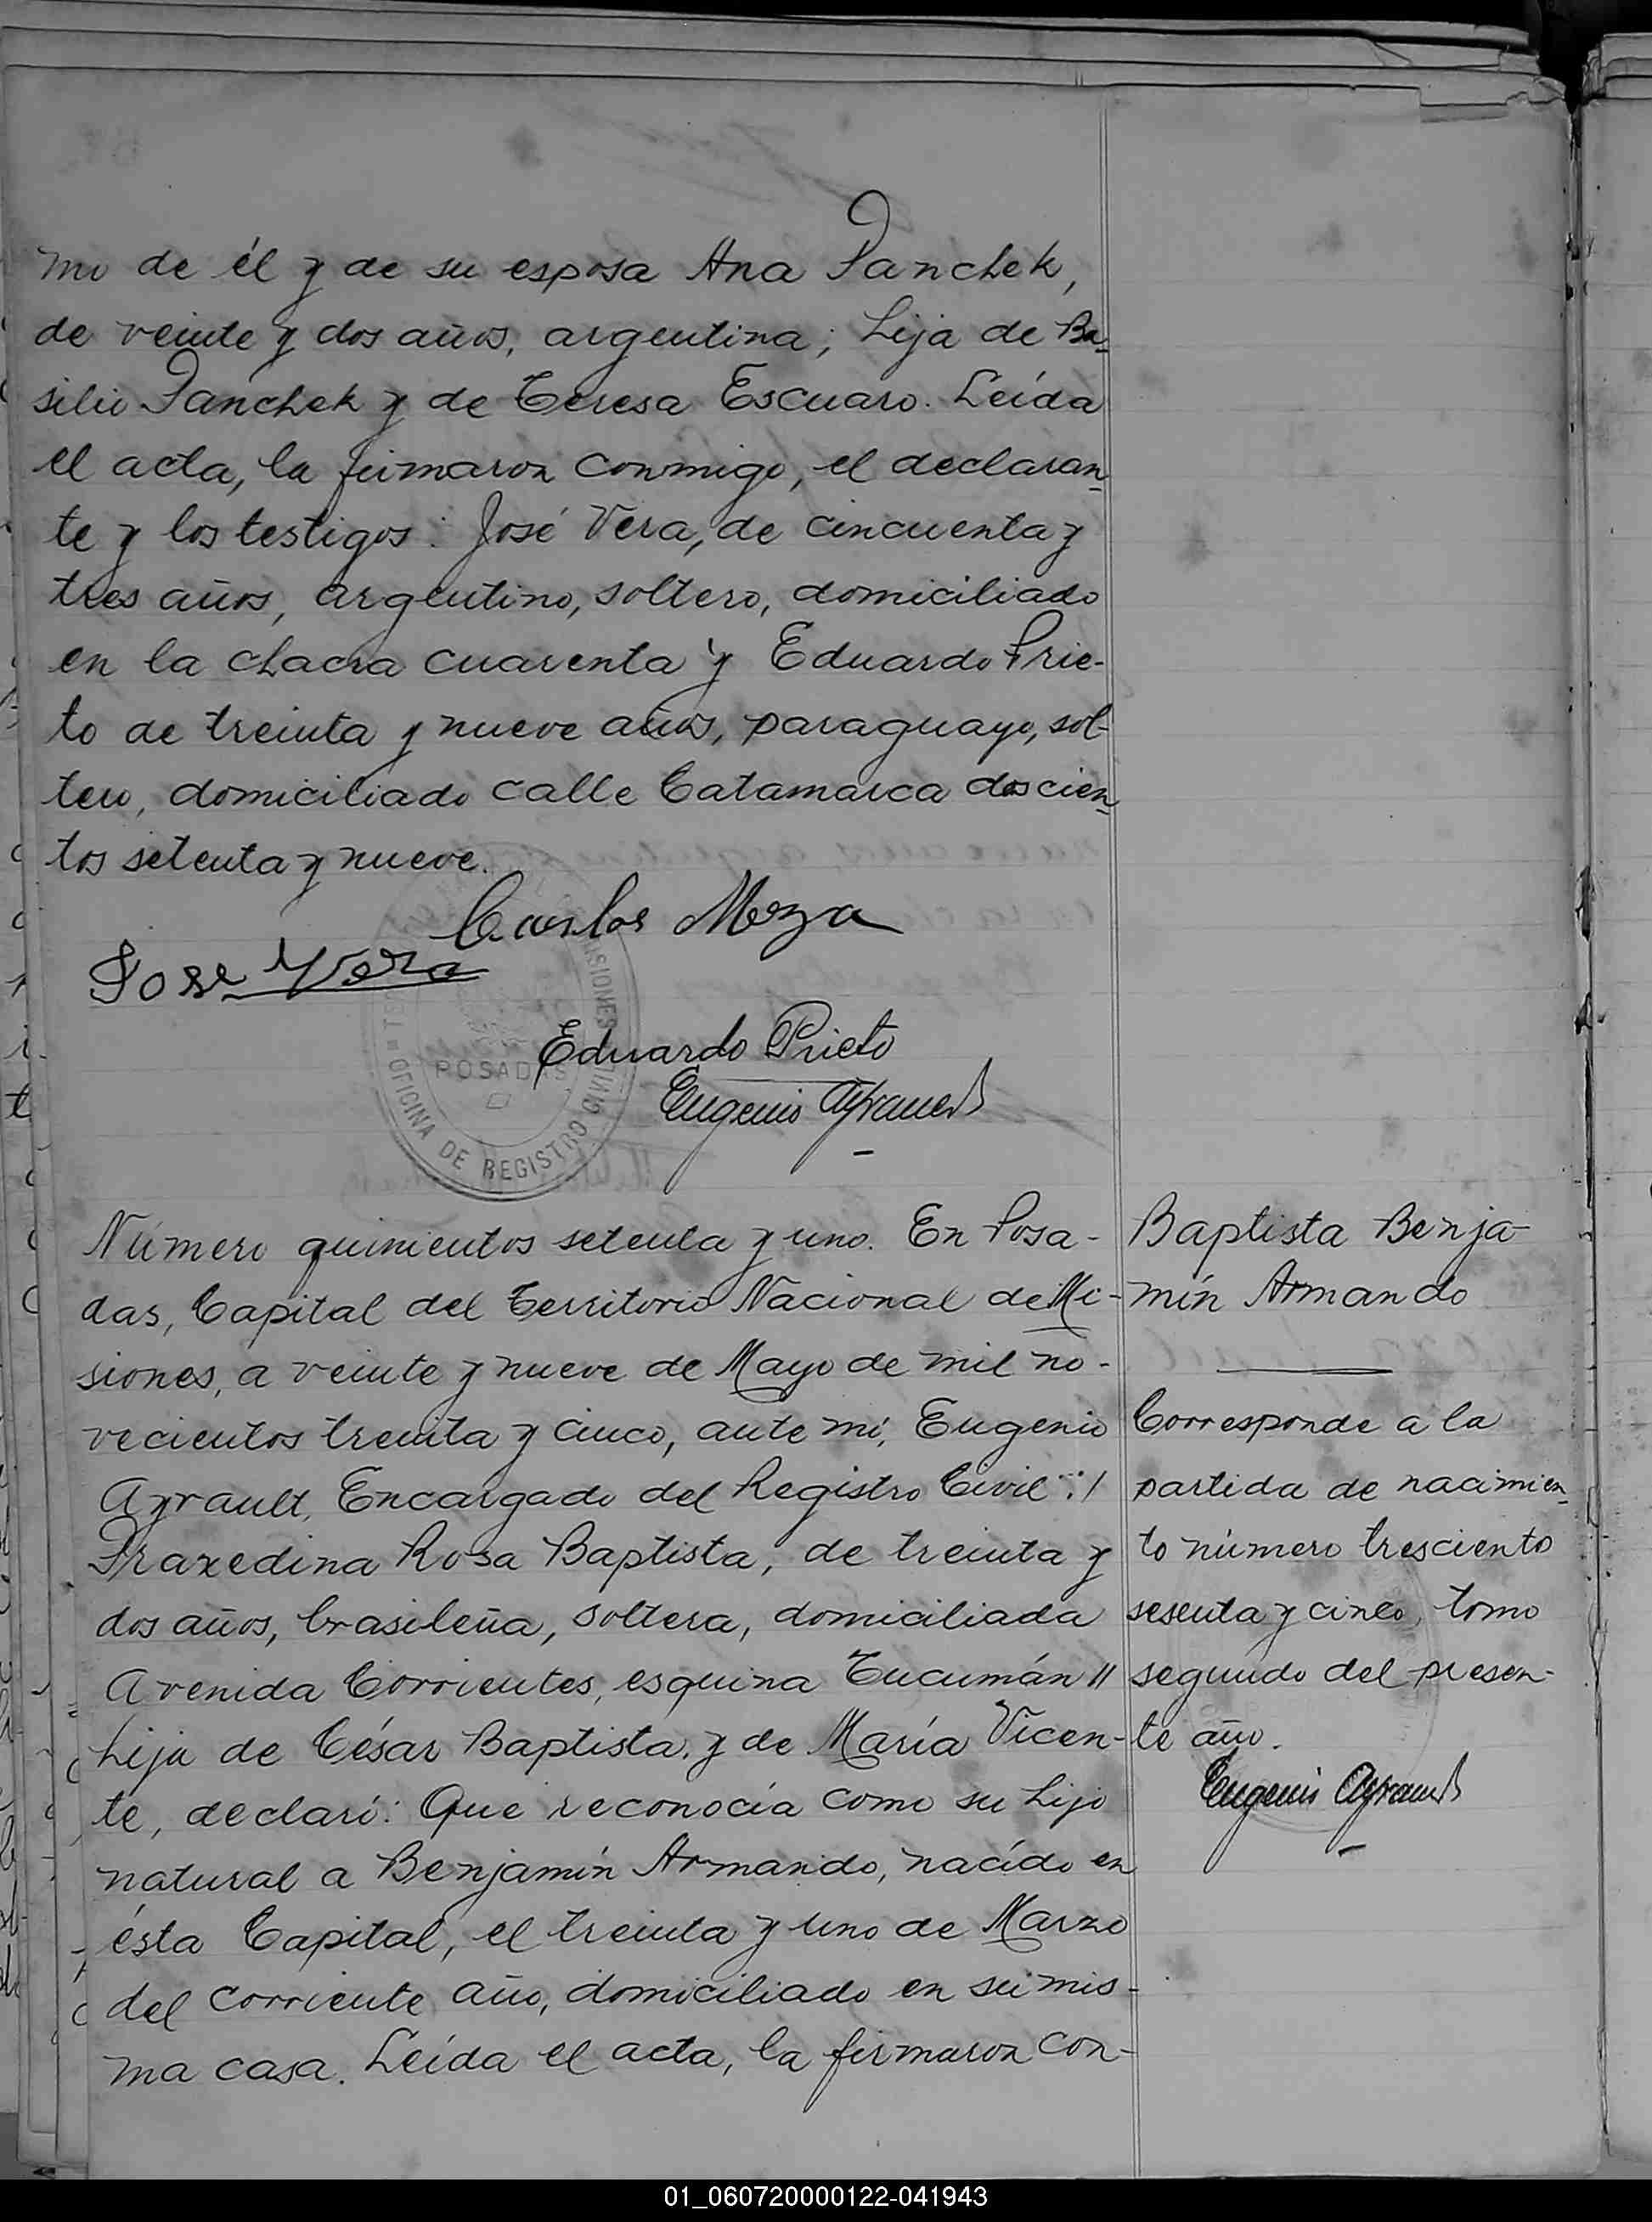 mo de él y de su esposa Ana Panchek,
de veinte y dos años, argentina; hija de Ba-
silio Panchek y de Teresa Escuaro. Leída
el acta, la firmaron conmigo, el declaran-
te y los testigos: José Vera, de cincuenta y
tres años, argentino, soltero, domiciliado
en la chacra cuarenta y Eduardo Prie-
to de treinta y nueve años, paraguayo, sol-
tero, domiciliado calle Catamarca doscien-
tos setenta y nueve.
Carlos Meza
Jose Vera
Eduardo Prieto
Eugenio Ayrault
MISIONES
POSADAS
OFICINA DE REGISTRO CIVIL
Número quinientos setenta y uno. En Posa-
das, Capital del Territorio Nacional de Mi-
siones, a veinte y nueve de Mayo de mil no-
vecientos treinta y cinco, ante mí, Eugenio
Ayrault, Encargado del Registro Civil:
Praxedina Rosa Baptista, de treinta y
dos años, brasileña, soltera, domiciliada
Avenida Corrientes, esquina Tucumán //
hija de César Baptista, y de María Vicen-
te, declaró: Que reconocía como su hijo
natural a Benjamín Armando, nacído en
ésta Capital, el treinta y uno de Marzo
del corriente año, domiciliado en su mis-
ma casa. Leída el acta, la firmaron con-
Baptista Benja-
mín Armando
Corresponde a la
partida de nacimien-
to número tresciento
sesenta y cinco, tomo
segundo del presen-
te año.
Eugenio Ayrault
01_060720000122-041943